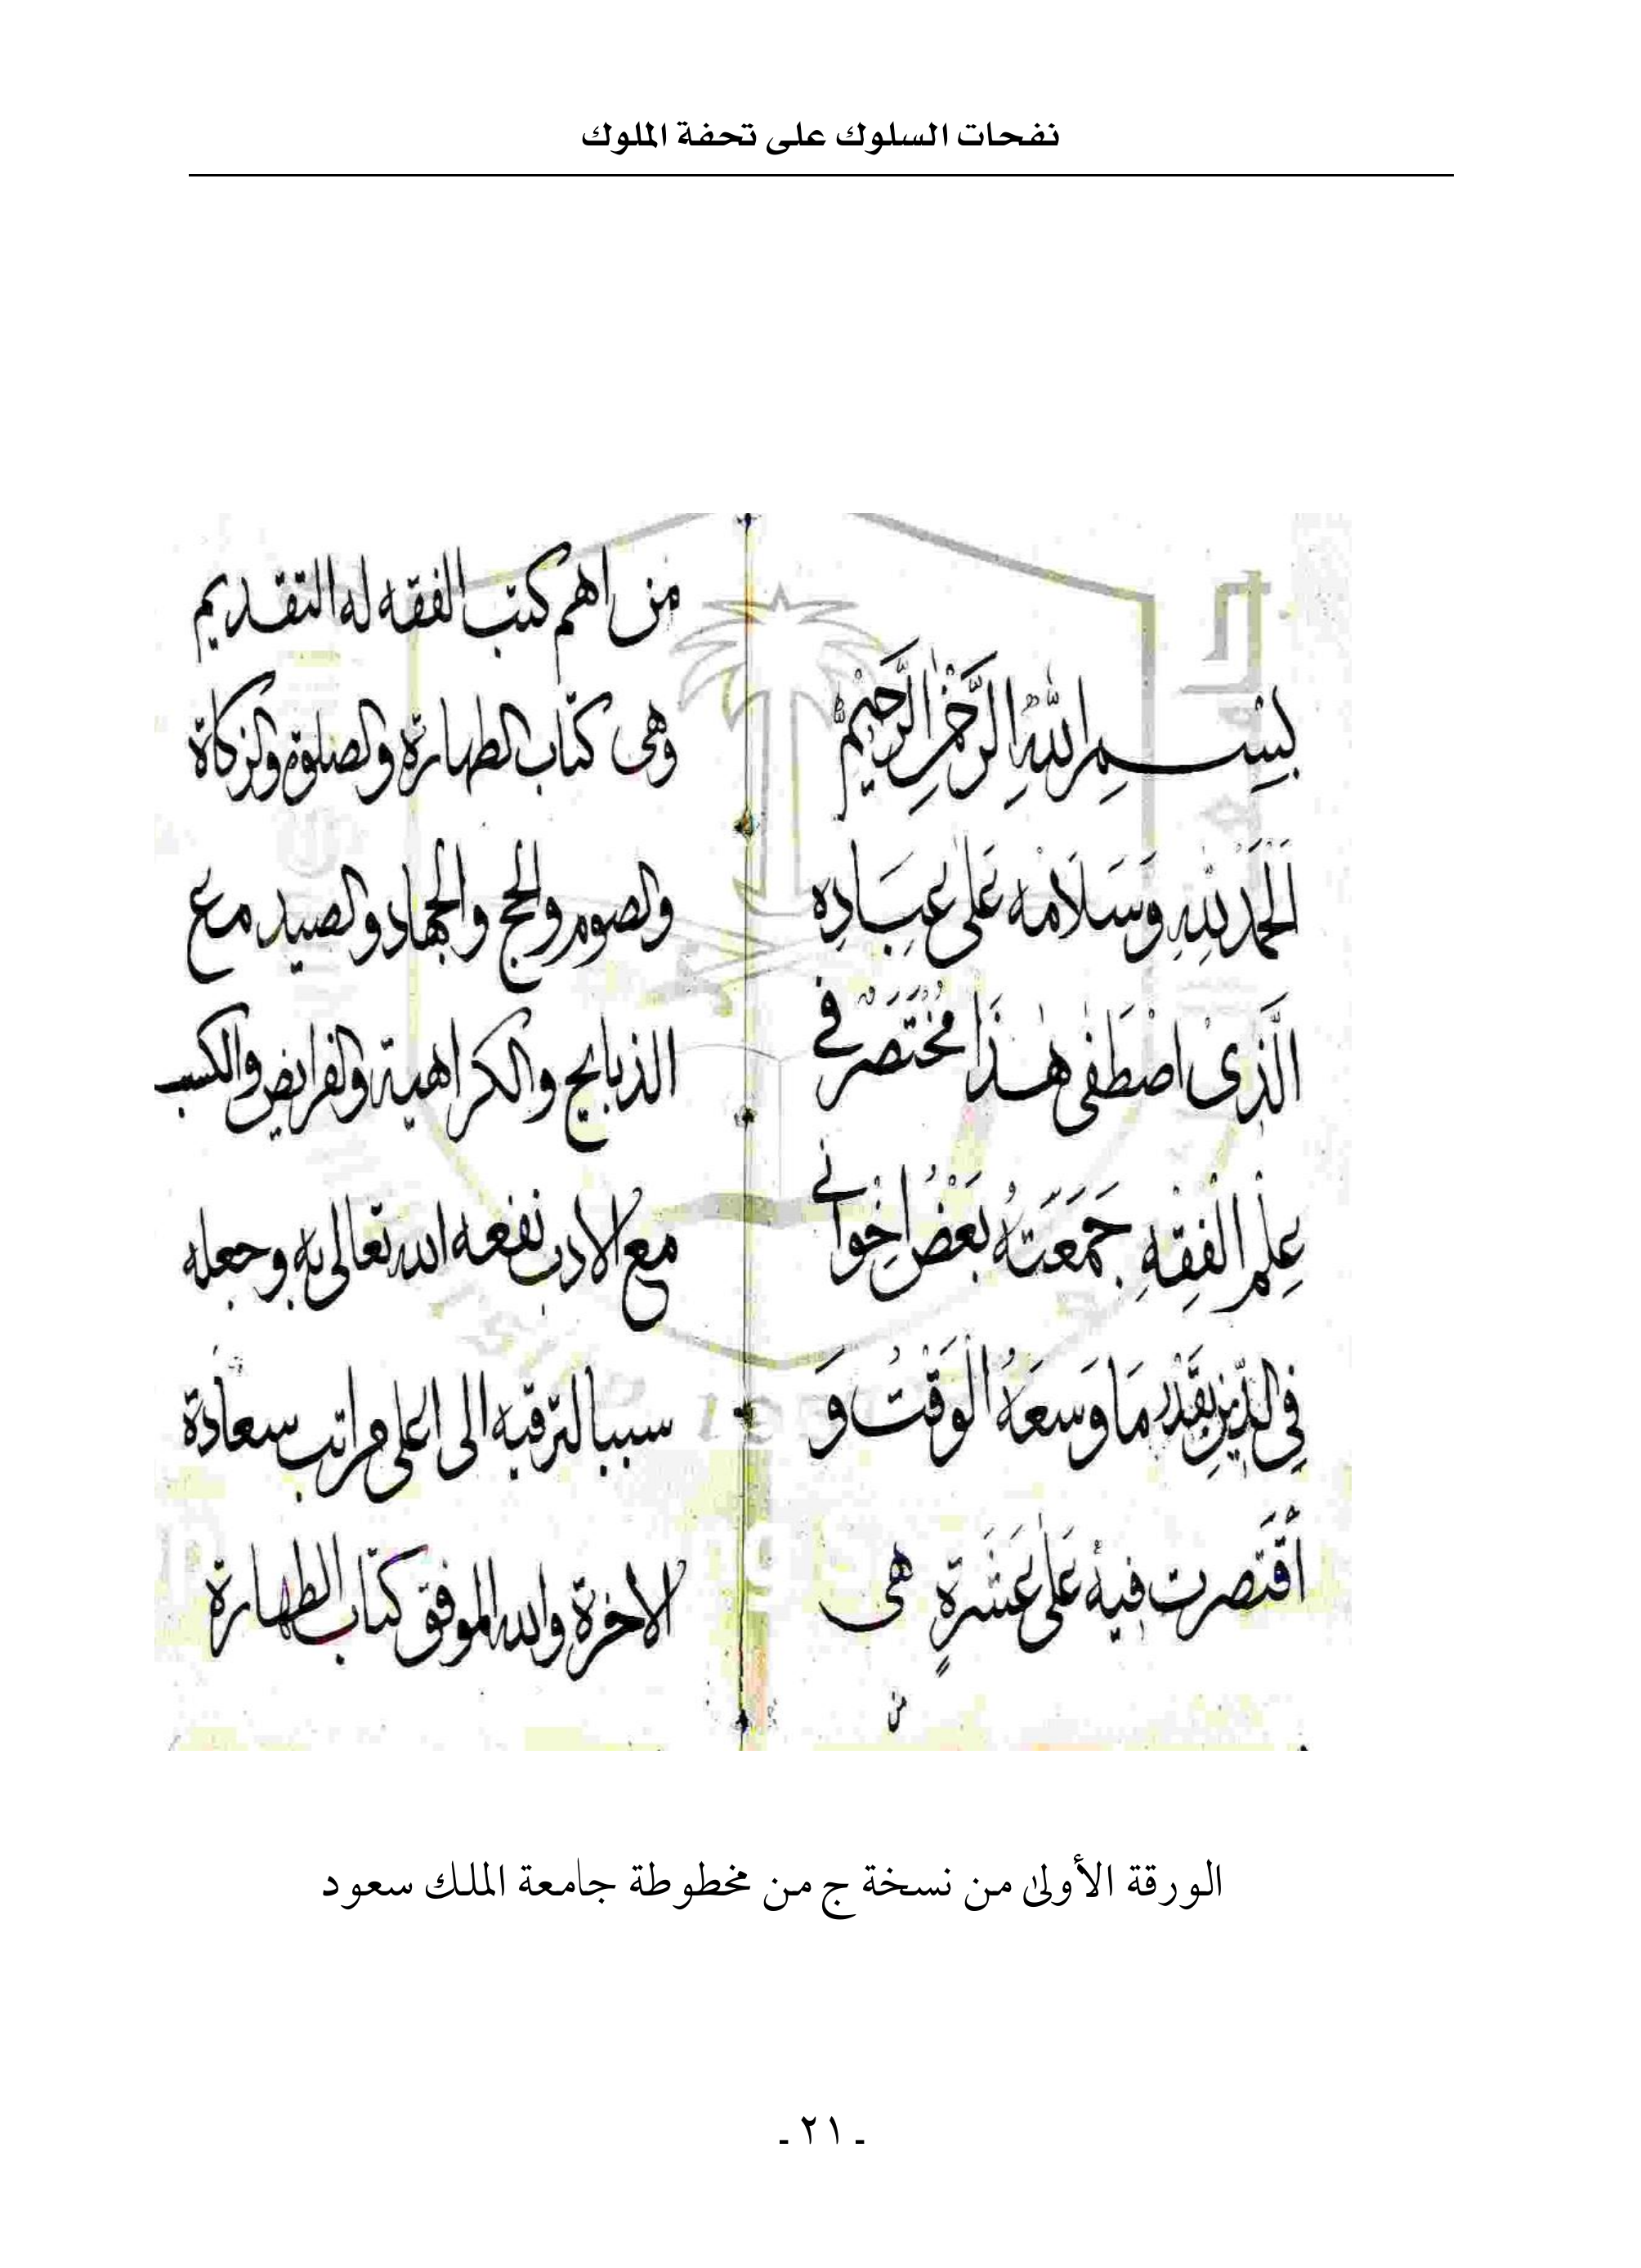 نفحات السلوك على تحفة الملوك
بِسْمِ اللهِ الرَّحْمٰنِ الرَّحِيْمِ
اَلْحَمْدُ لِلّٰهِ وَسَلَامُهُ عَلٰى عِبَادِهِ
الَّذِىْ اصْطَفٰى هٰذَا مُخْتَصَرٌ فِى
عِلْمِ الْفِقْهِ جَمَعْتُهُ بَعْضُ اِخْوَانِى
فِى الدِّيْنِ بِقَدْرِ مَا وَسِعَهُ الْوَقْتُ وَ
اَقْتَصَرت فِيْهِ عَلٰى عَشَرَةٍ هى
من
من اهم كتب الفقه له التقديم
وهى كتاب الطهارة والصلوة والزكاة
والصوم والحج والجهاد والصيد مع
الذبايح والكراهية والفرايض والكسب
مع الادب نفعه الله تعالى به وجعله
سببا لترقيه الى اعلى مراتب سعادة
الاخرة والله الموفق كتاب الطهارة
الورقة الأولىٰ من نسخة ج من مخطوطة جامعة الملك سعود
ـ ٢١ ـ